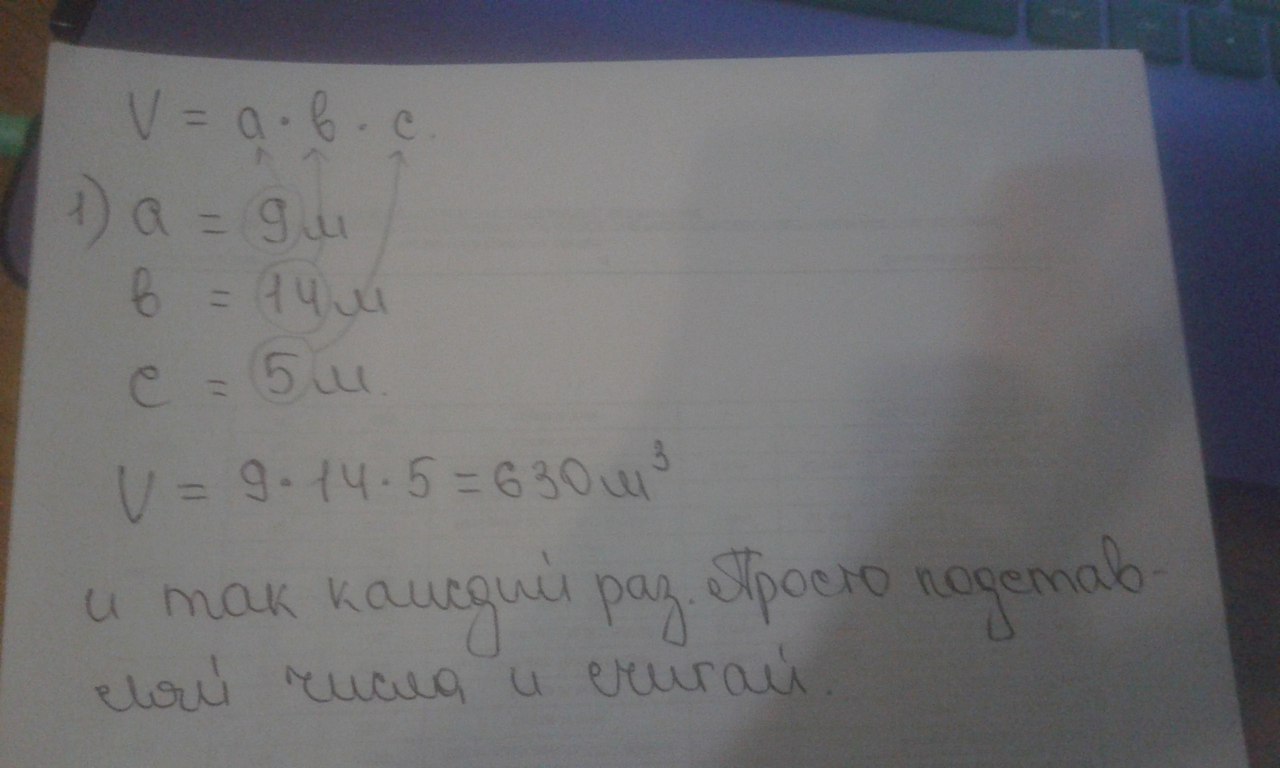 V = а · в · с.
1) а = 9 м
в = 14 м
с = 5 м.
V = 9 · 14 · 5 = 630 м³
и так каждый раз. Просто подстав-
ляй числа и считай.